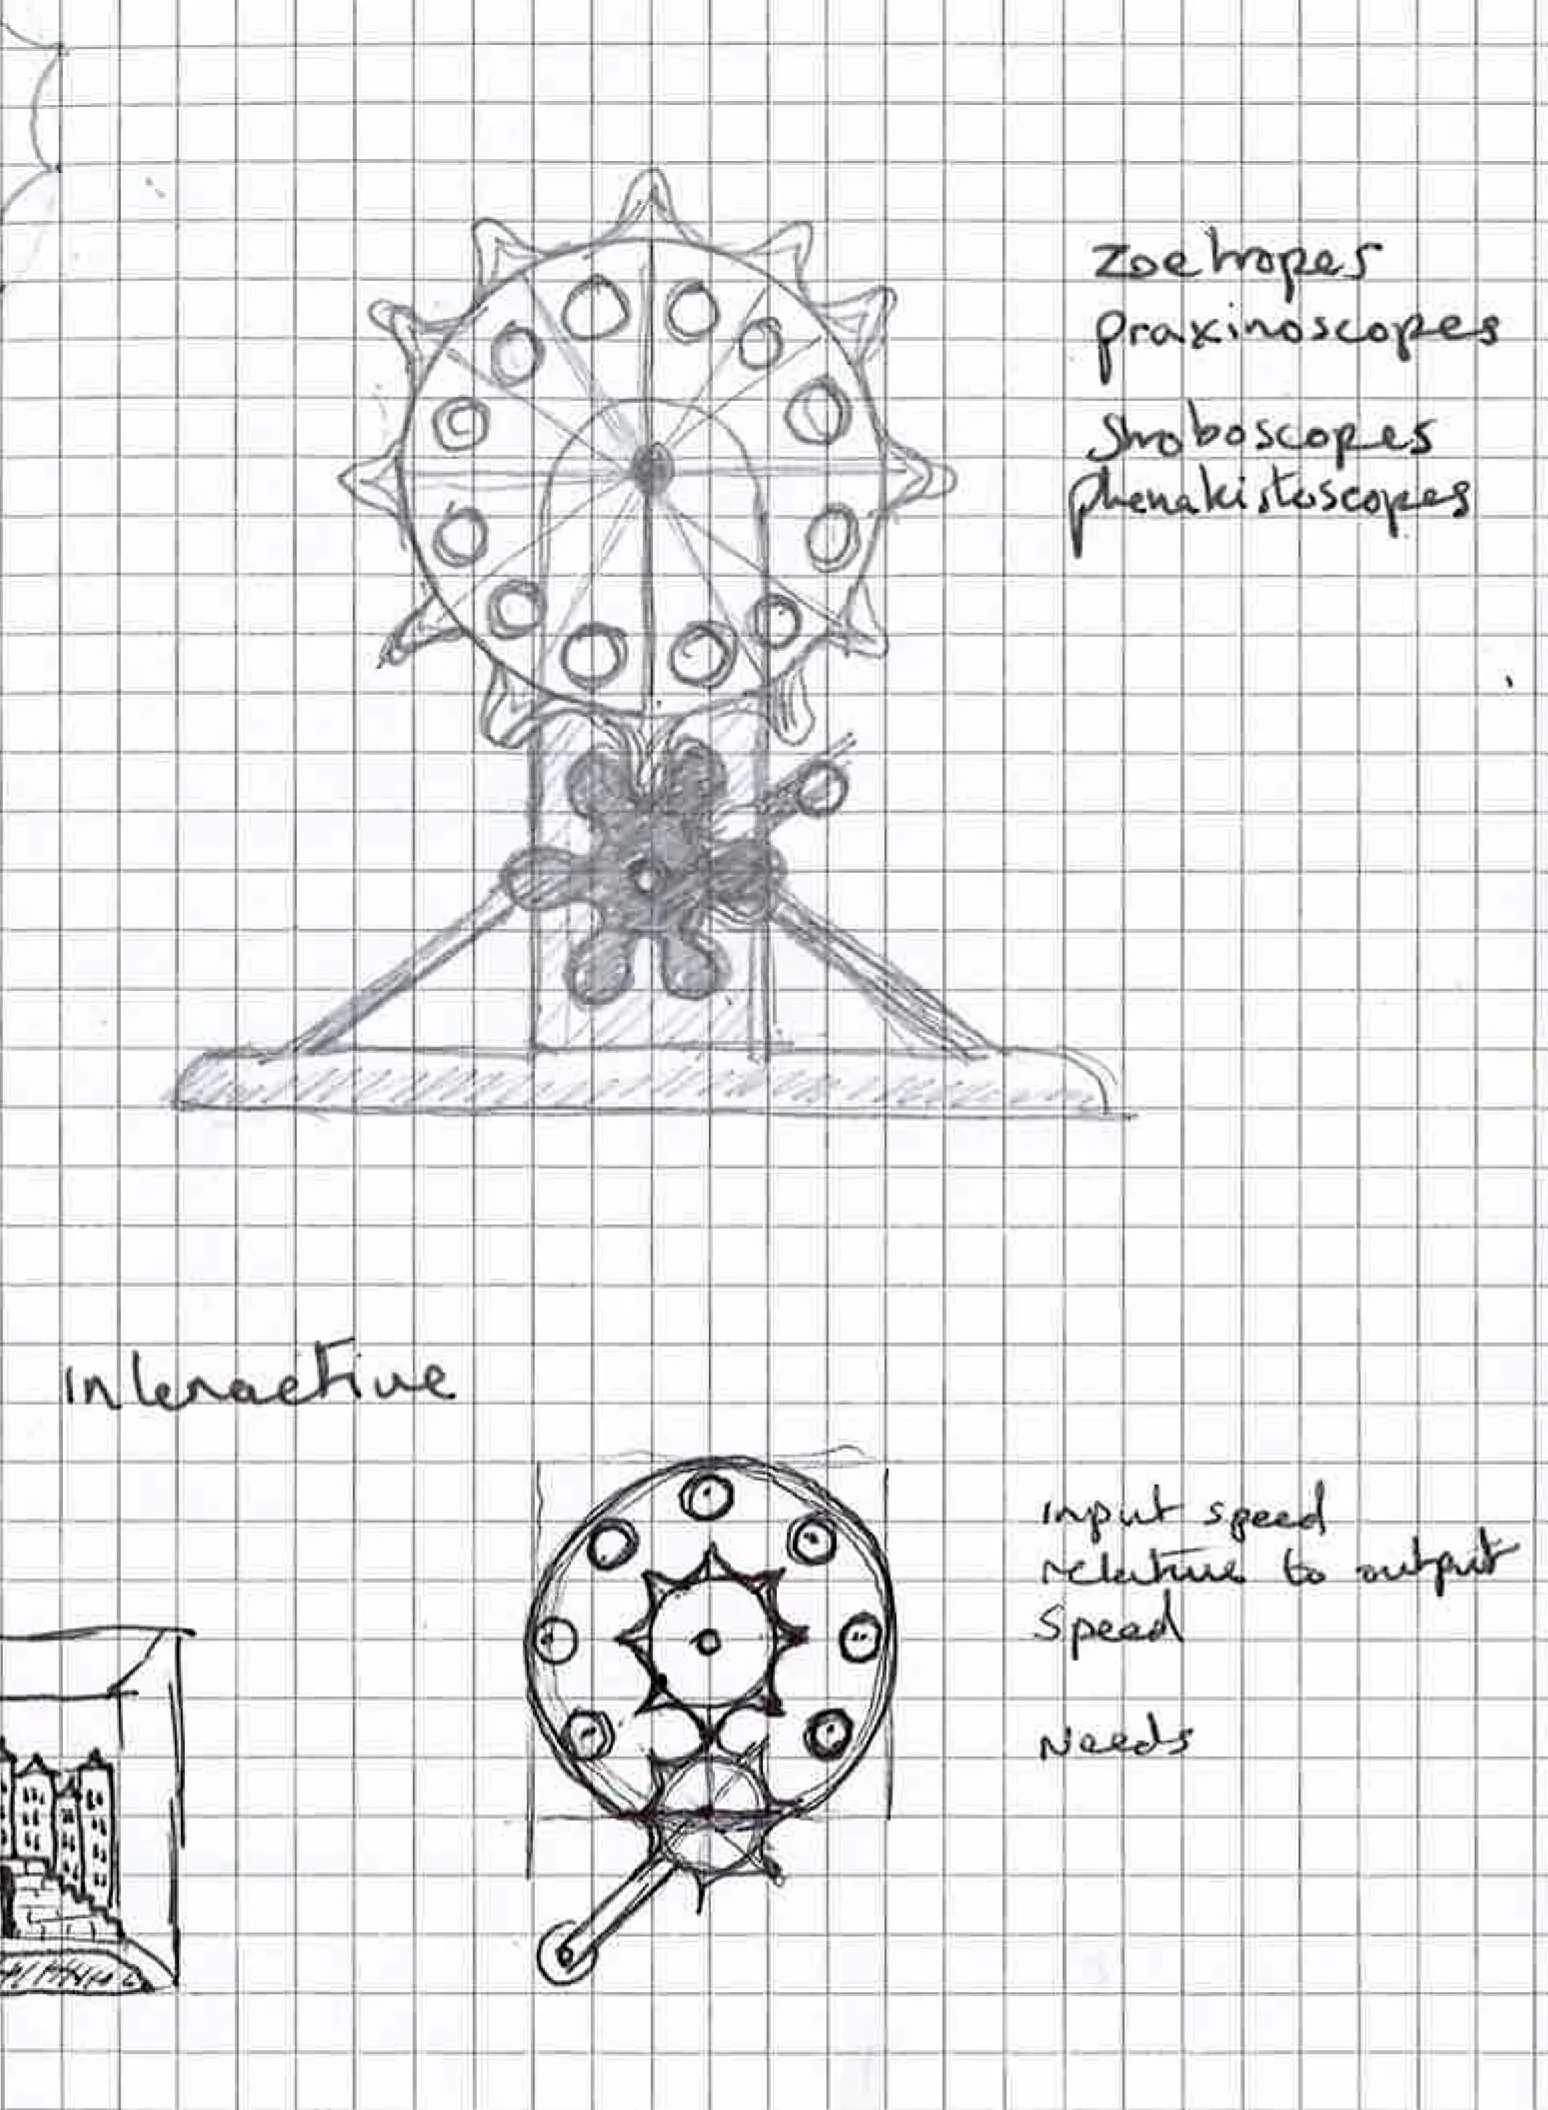 Zoetropes
praxinoscopes
Stroboscopes
phenakistoscopes
Interactive
Input speed
relative to output
speed
Needs